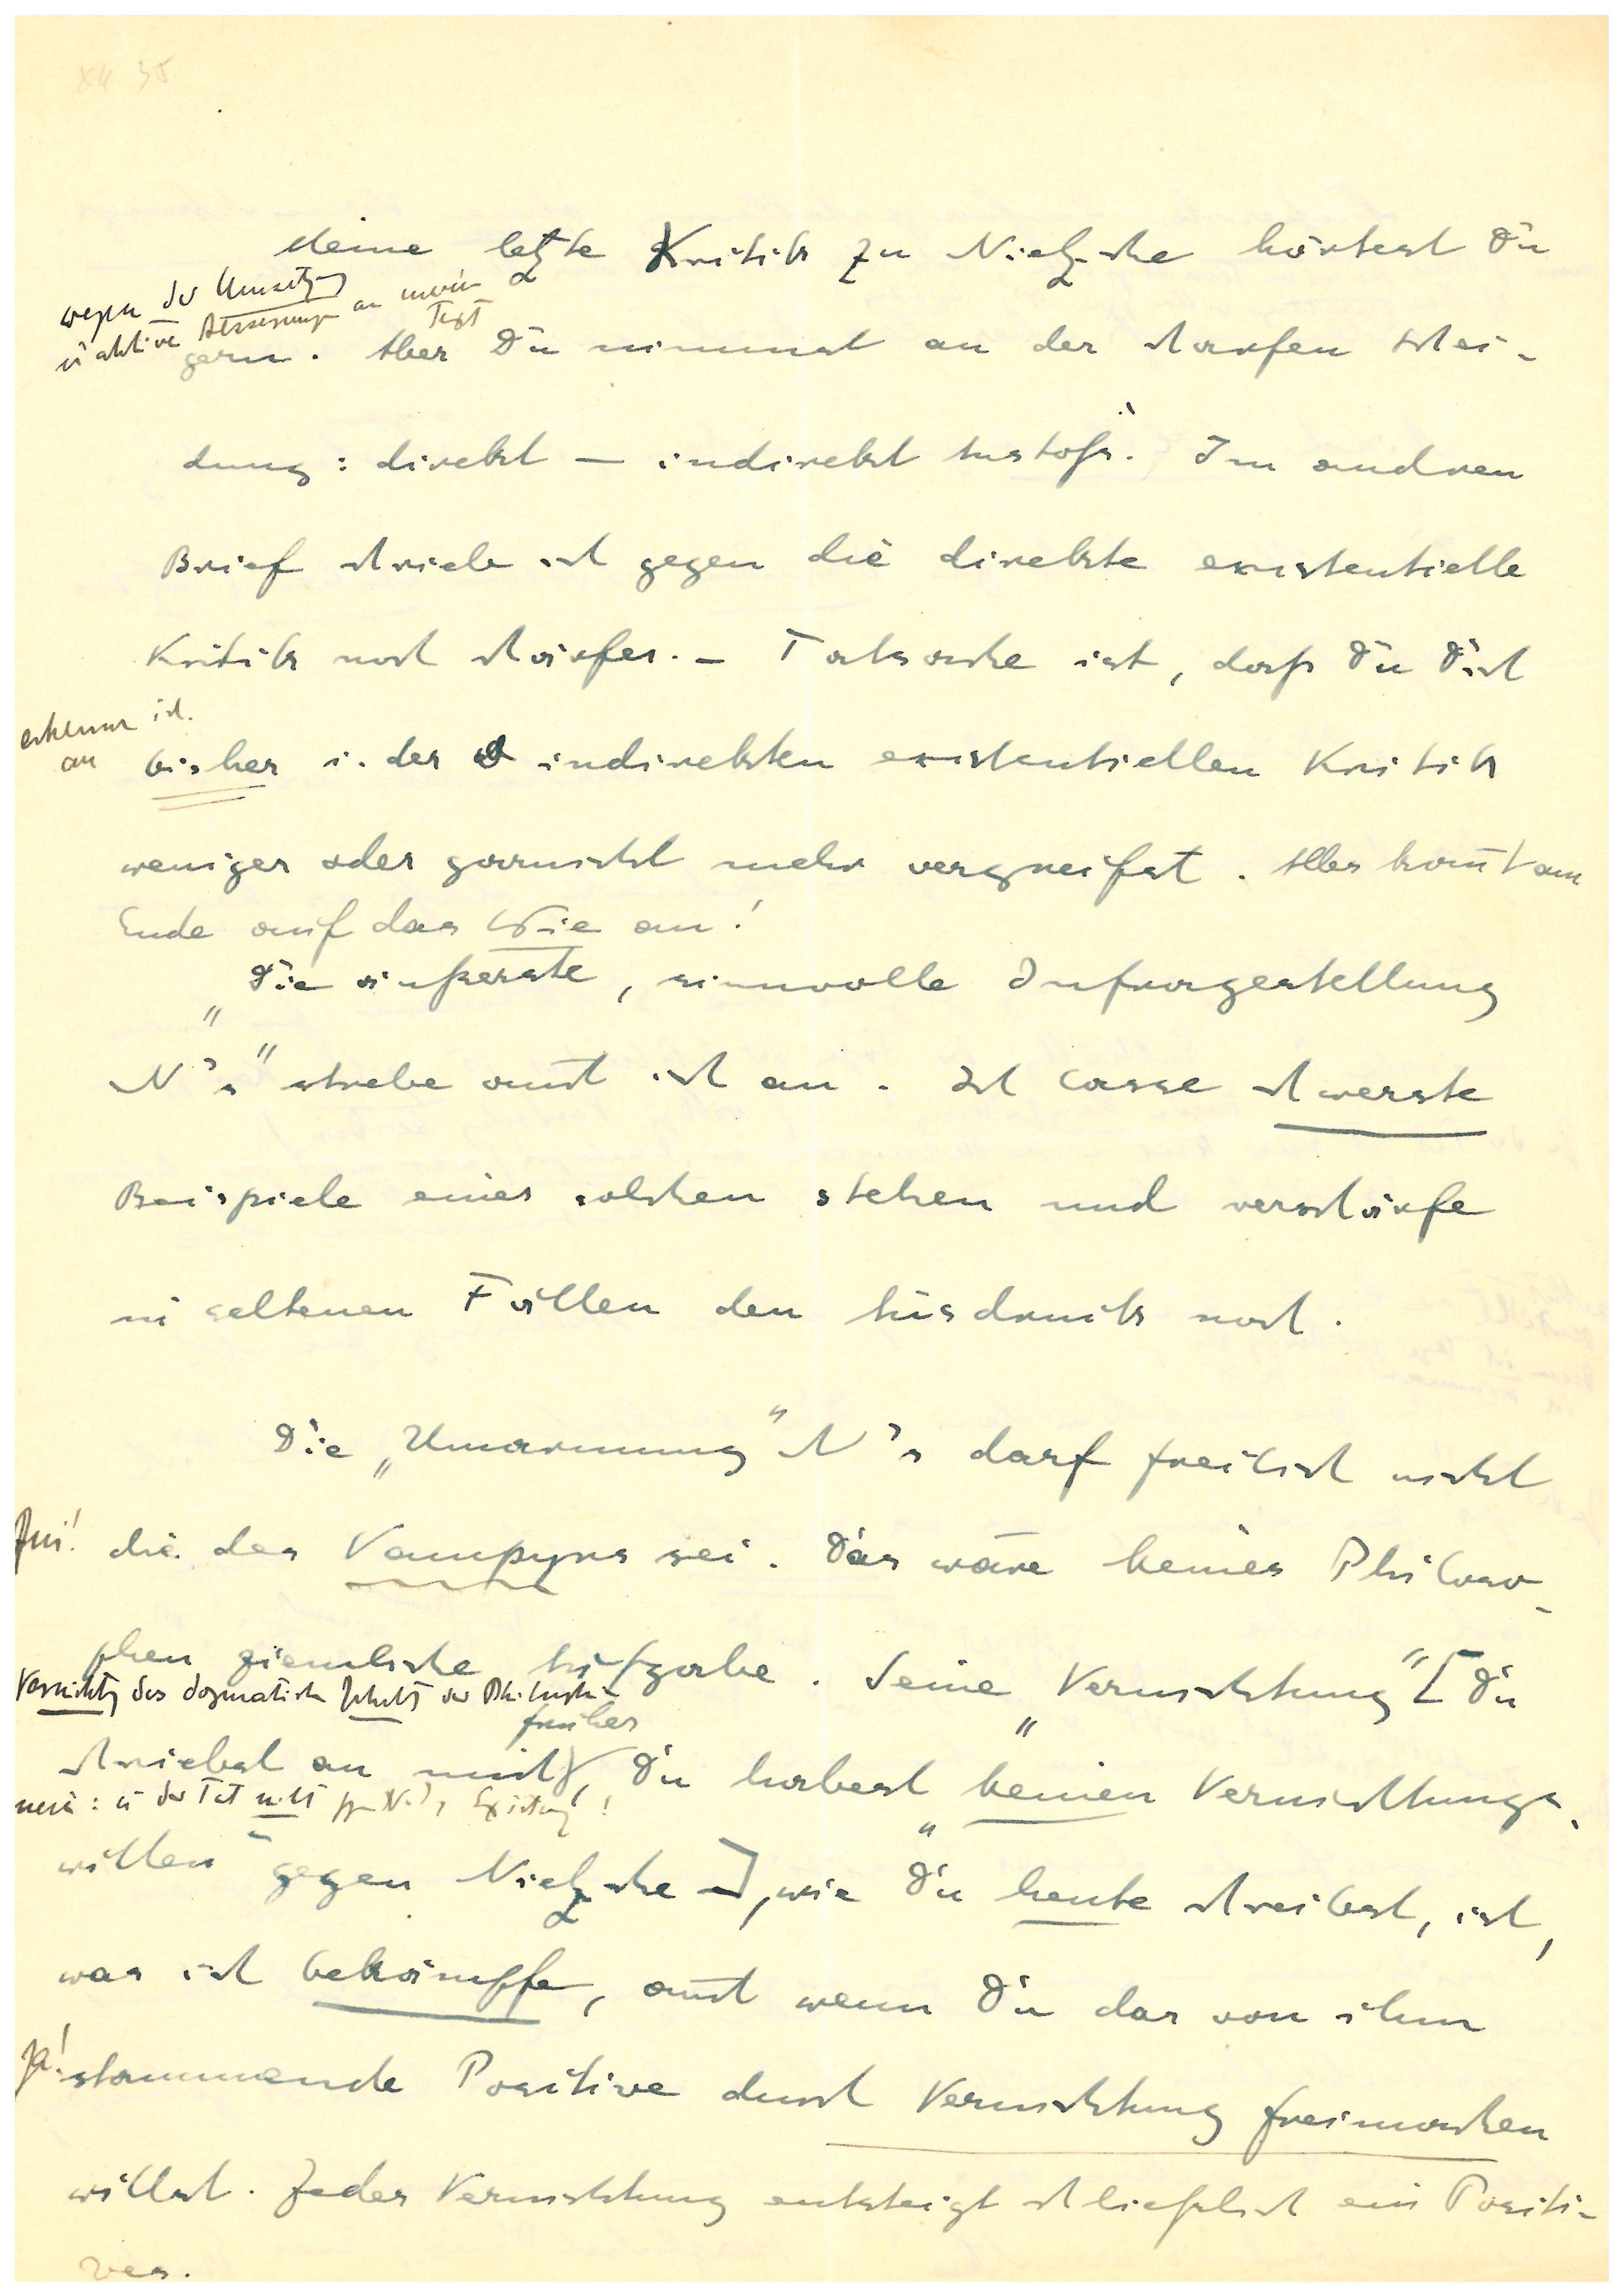 XII 35
Meine letzte Kritik zu Nietzsche hörtest Du
wegen der Umsetzung
in aktive Besserung an meinem
Text
gern. Aber Du nimmst an der scharfen Schei-
dung: direkt — indirekt Anstoß. Im andren
Brief schrieb ich gegen die direkte existentielle
Kritik noch schärfer. – Tatsache ist, daß Du Dich
erkenne ich
an
bisher i. der indirekten existentiellen Kritik
weniger oder garnicht mehr vergreifst. Alles kom̄t am
Ende auf das Wie an!
„Die äußerste, sinnvolle Infragestellung
N's" strebe auch ich an. Ich lasse schwerste
Beispiele einer solchen stehen und verschärfe
in seltenen Fällen den Ausdruck noch.
Die „Umarmung" N's darf freilich nicht
die des Vampyrs sei. Das wäre keines Philoso-
phen ziemliche Aufgabe. Seine „Vernichtung" [Du
Vernichtung des dogmatischen der
früher
schriebst an mich, Du habest „keinen Vernichtungs-
nein: in der Tat nicht
willen" gegen Nietzsche], wie Du heute schreibst, ist,
was ich bekämpfe, auch wenn Du das von ihm
Ja!
stammende Positive durch Vernichtung freimachen
willst. Jeder Vernichtung entsteigt schließlich ein Positi-
ves.